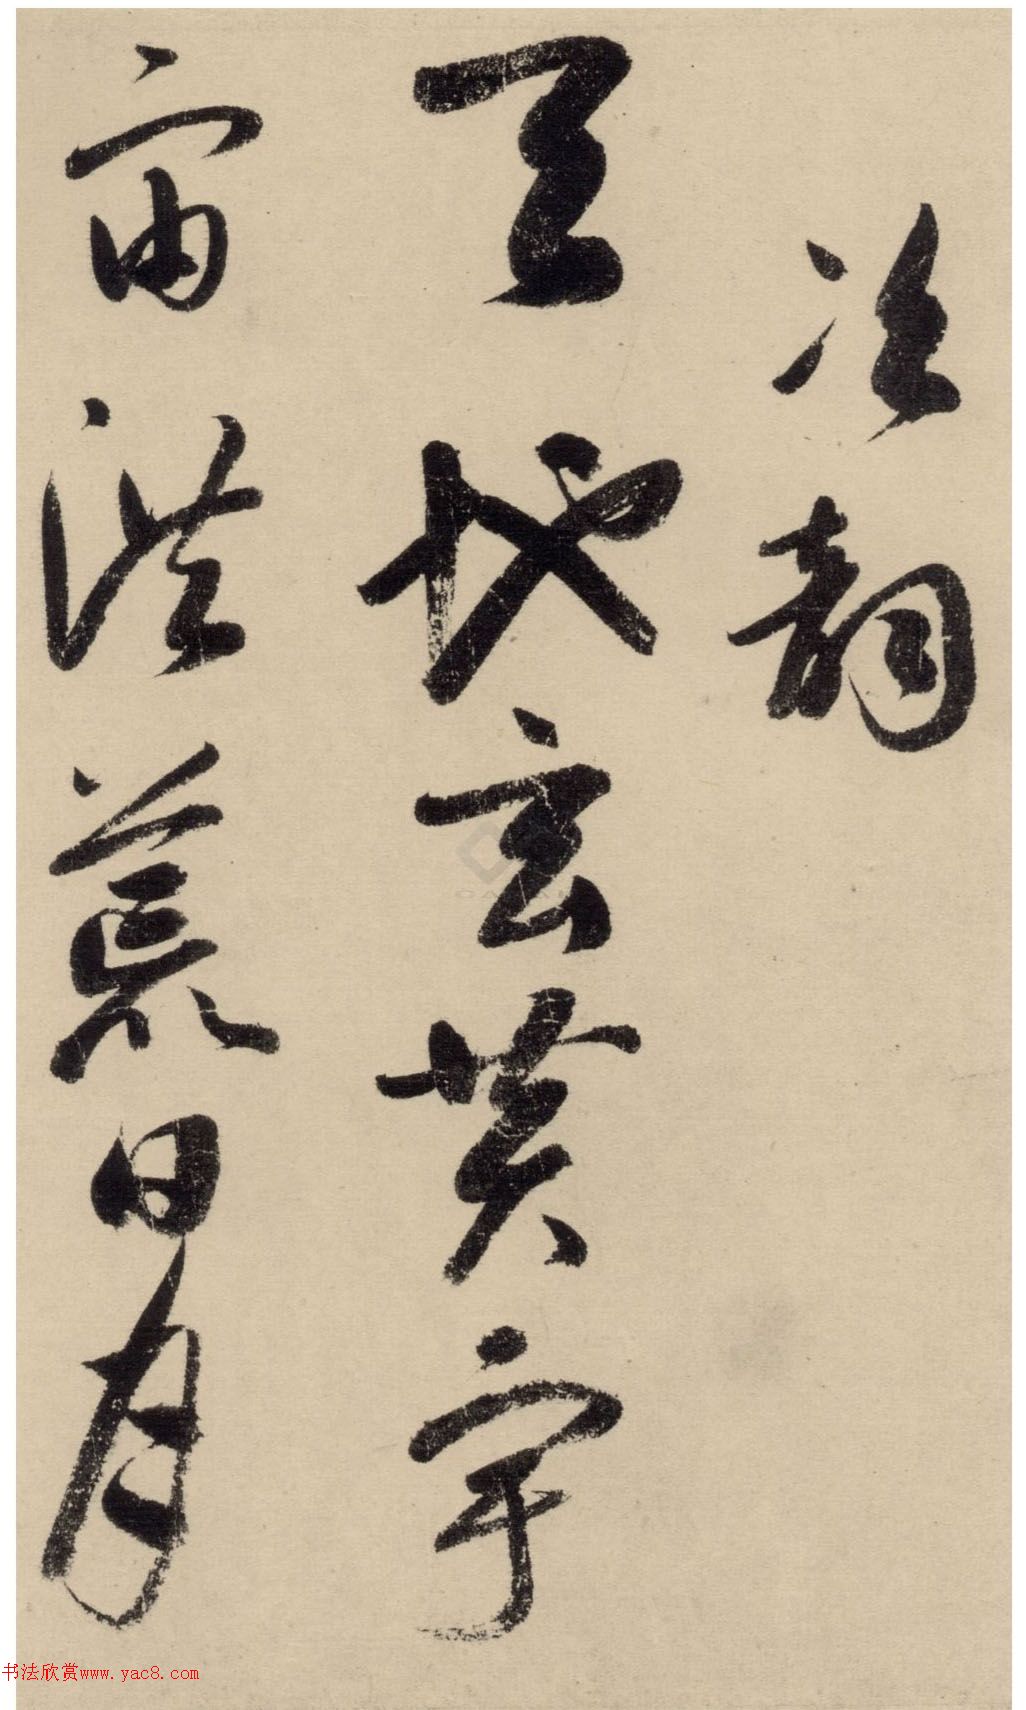 次韵
天地玄黄宇
宙洪荒日月
书法欣赏www.yac8.com